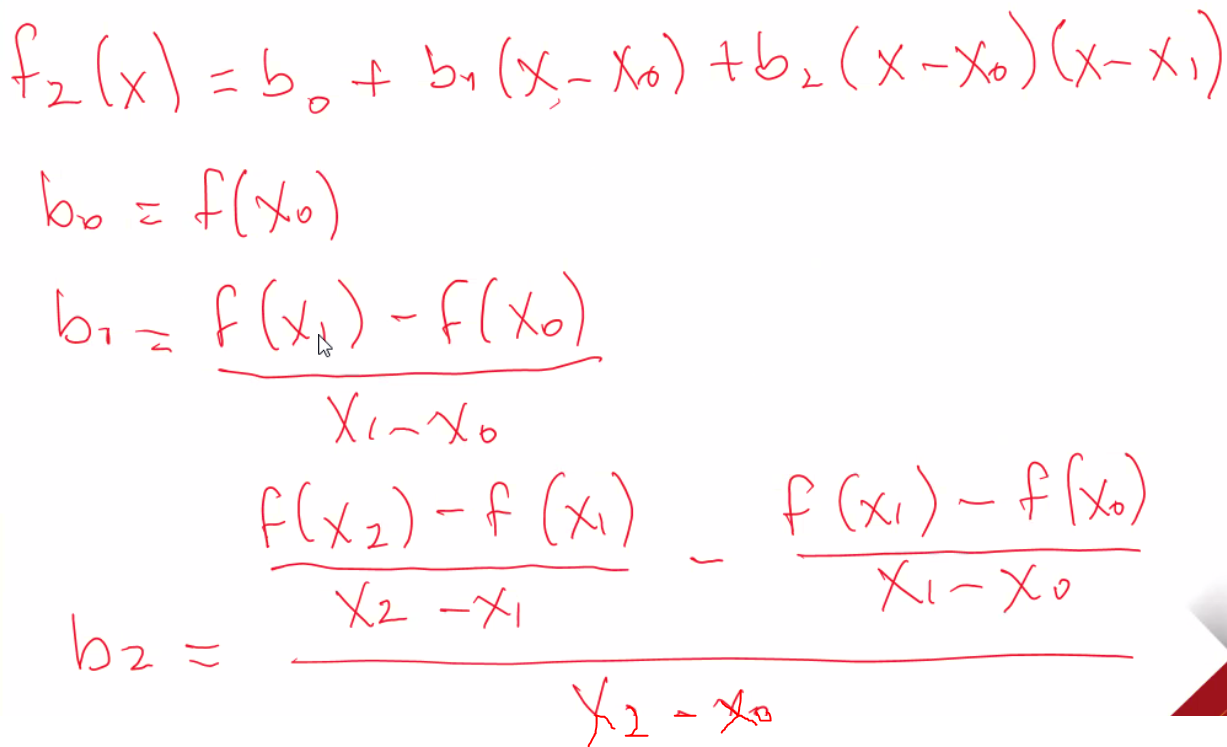 f₂(x) = b₀ + b₁(x - x₀) + b₂(x - x₀)(x - x₁)
b₀ = f(x₀)
b₁ = (f(x₁) - f(x₀)) / (x₁ - x₀)
b₂ = ((f(x₂) - f(x₁)) / (x₂ - x₁) - (f(x₁) - f(x₀)) / (x₁ - x₀)) / (x₂ - x₀)